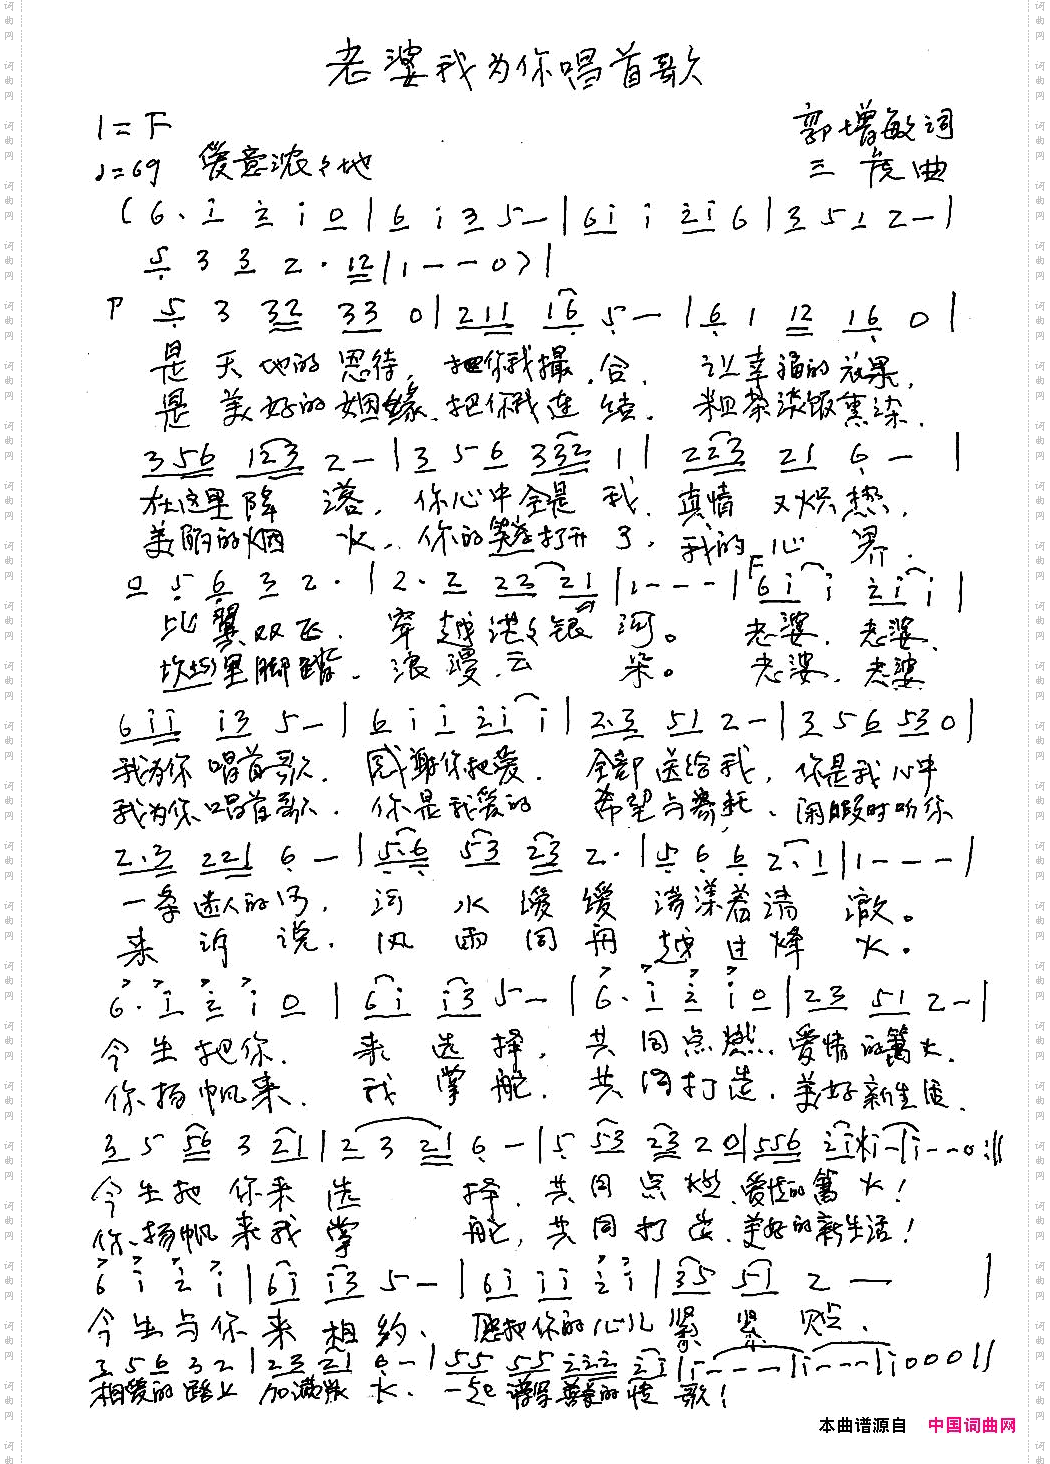 老婆我为你唱首歌
1=F
郭增敏词
♩=69 爱意浓々地
三虎曲
(6·i 2 i 0|6 i 3 5-|6i i 2i 6|3 5 1 2-|
5 3 3 2·12|1--0)|
P 5 3 32 33 0|211 16 5-|6 1 12 16 0|
是天地的恩待,把你我撮合,让幸福的效果,
是美好的姻缘,把你我连结,粗茶淡饭熏染,
356 123 2-|3 5 6 332 1||223 21 6-|
在这里降落,你心中全是我,真情又炽热,
美丽的烟火,你的笑容打开了,我的心界,
0 5 6 3 2·|2·2 23 21|1---|F 6i i 2i i|
比翼双飞,穿越茫々银河。老婆,老婆,
坎坷里脚踏,浪漫云朵。老婆,老婆
6ii i3 5-|6 i i 2i i|2·3 51 2-|3 5 6 53 0|
我为你唱首歌,感谢你把爱,全部送给我,你是我心中
我为你唱首歌,你是我爱的希望与寄托,闲暇时听你
2·3 221 6-|5·6 53 23 2·|5 6 6 2·1|1---|
一条迷人的河,河水缓缓荡漾着清澈。
来诉说,风雨同舟越过烽火。
6·i 2 i 0|6i i3 5-|6·i 2 i 0|23 51 2-|
今生把你,来选择,共同点燃,爱情的篝火,
你扬帆来,我掌舵,共同打造,美好新生活,
3 5 56 3 21|2 3 21 6-|5 53 23 20|556 2i i-|i--0:||
今生把你来选择,共同点燃,爱情的篝火!
你扬帆来我掌舵,共同打造,美好的新生活!
6 i 2 i|6i i3 5-|6i ii 2 i|35 51 2-|
今生与你来相约,愿把你的心儿紧紧贴,
3 5 6 3 2|23 21 6-|55 55 222 2i|i---|i---|i000||
相爱的路上加满水,一起谱写善良的情歌!
本曲谱源自 中国词曲网
词曲网